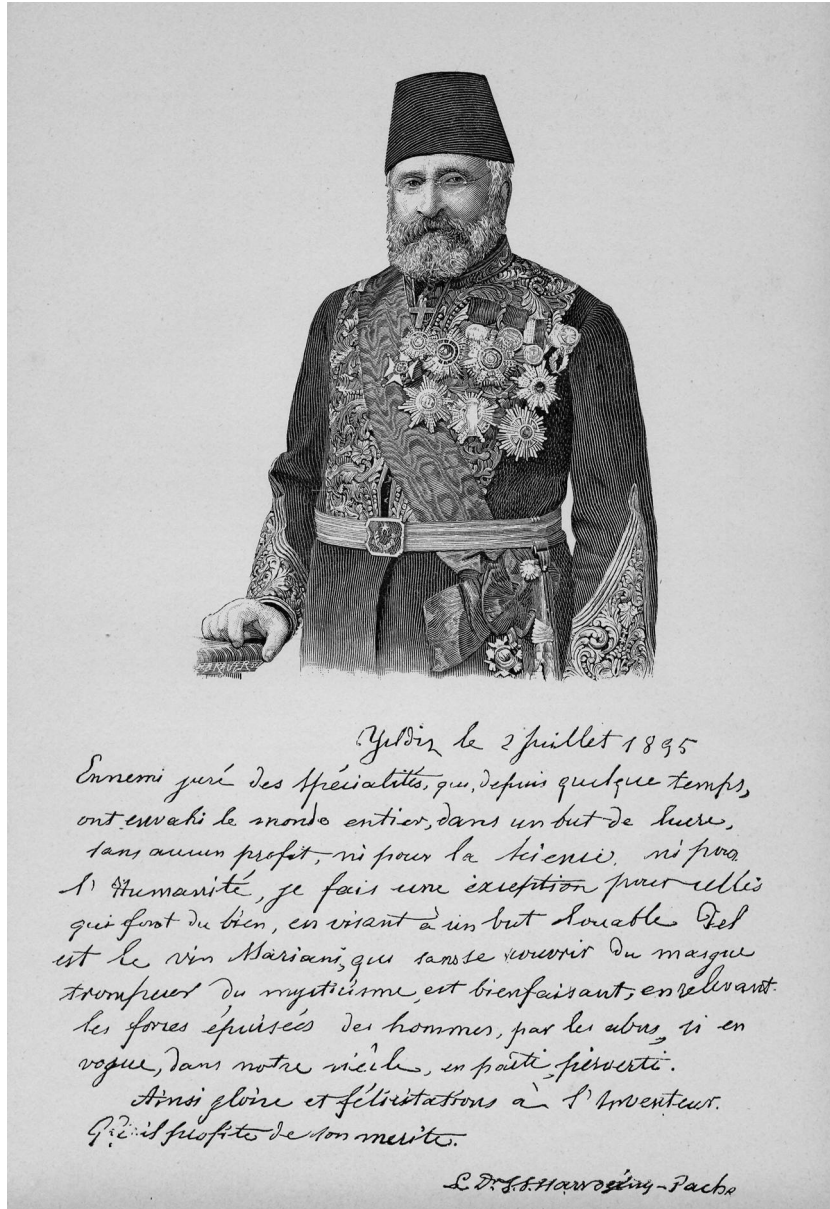 Yildiz le 2 Juillet 1895
Ennemi juré des spécialités, qui, depuis quelque temps,
ont envahi le monde entier, dans un but de lucre,
sans aucun profit, ni pour la science, ni pour
l'Humanité, je fais une exception pour celles
qui font du bien, en visant à un but louable Tel
est le vin Mariani, qui sans se couvrir du masque
trompeur du mysticisme, est bienfaisant, en relevant
les forces épuisées des hommes, par les abus, si en
vogue, dans notre siècle, en partie, perverti.
Ainsi gloire et félicitations à l'Inventeur.
Qu'il profite de son merite.
Dr